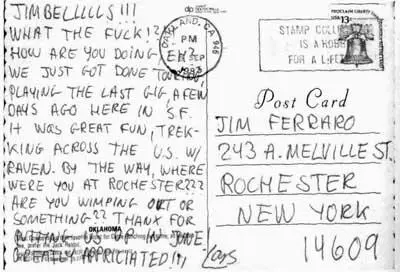 JIMBELLLLS!!!
WHAT THE FUCK!?
HOW ARE YOU DOING, EH?
WE JUST GOT DONE TOURING,
PLAYING THE LAST GIG, A FEW
DAYS AGO HERE IN S.F.
IT WAS GREAT FUN, TREK-
KING ACROSS THE U.S. W/
RAVEN. BY THE WAY, WHERE
WERE YOU AT ROCHESTER???
ARE YOU WIMPING OUT OR
SOMETHING?? THANX FOR
OKLAHOMA
PUTTING US UP IN JUNE.
GREATLY APPRICIATED!!,
Lars
OAKLAND, CA 946
PM
SEP
1983
STAMP COLL
IS A HOBB
FOR A LIFE
13c
Post Card
JIM FERRARO
243 A. MELVILLE ST.
ROCHESTER
NEW YORK
14609